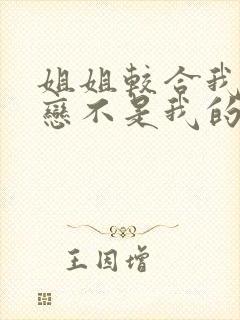 姐姐較合我
戀不是我的
王因增